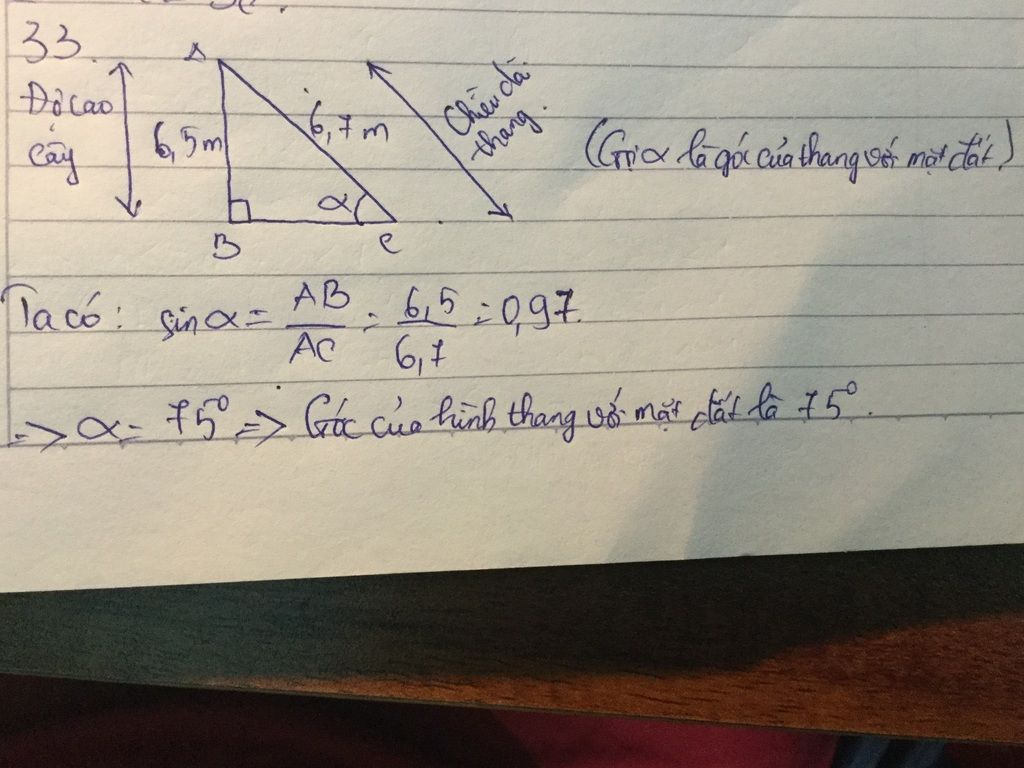 33.
A
Độ cao
cây
6,5m
6,7m
Chiều dà
thang.
(Gọi α là góc của thang với mặt đất)
α
B
C
Ta có: sin α = AB/AC = 6,5/6,7 = 0,97.
=> α = 75° => Góc của hình thang với mặt đất là 75°.